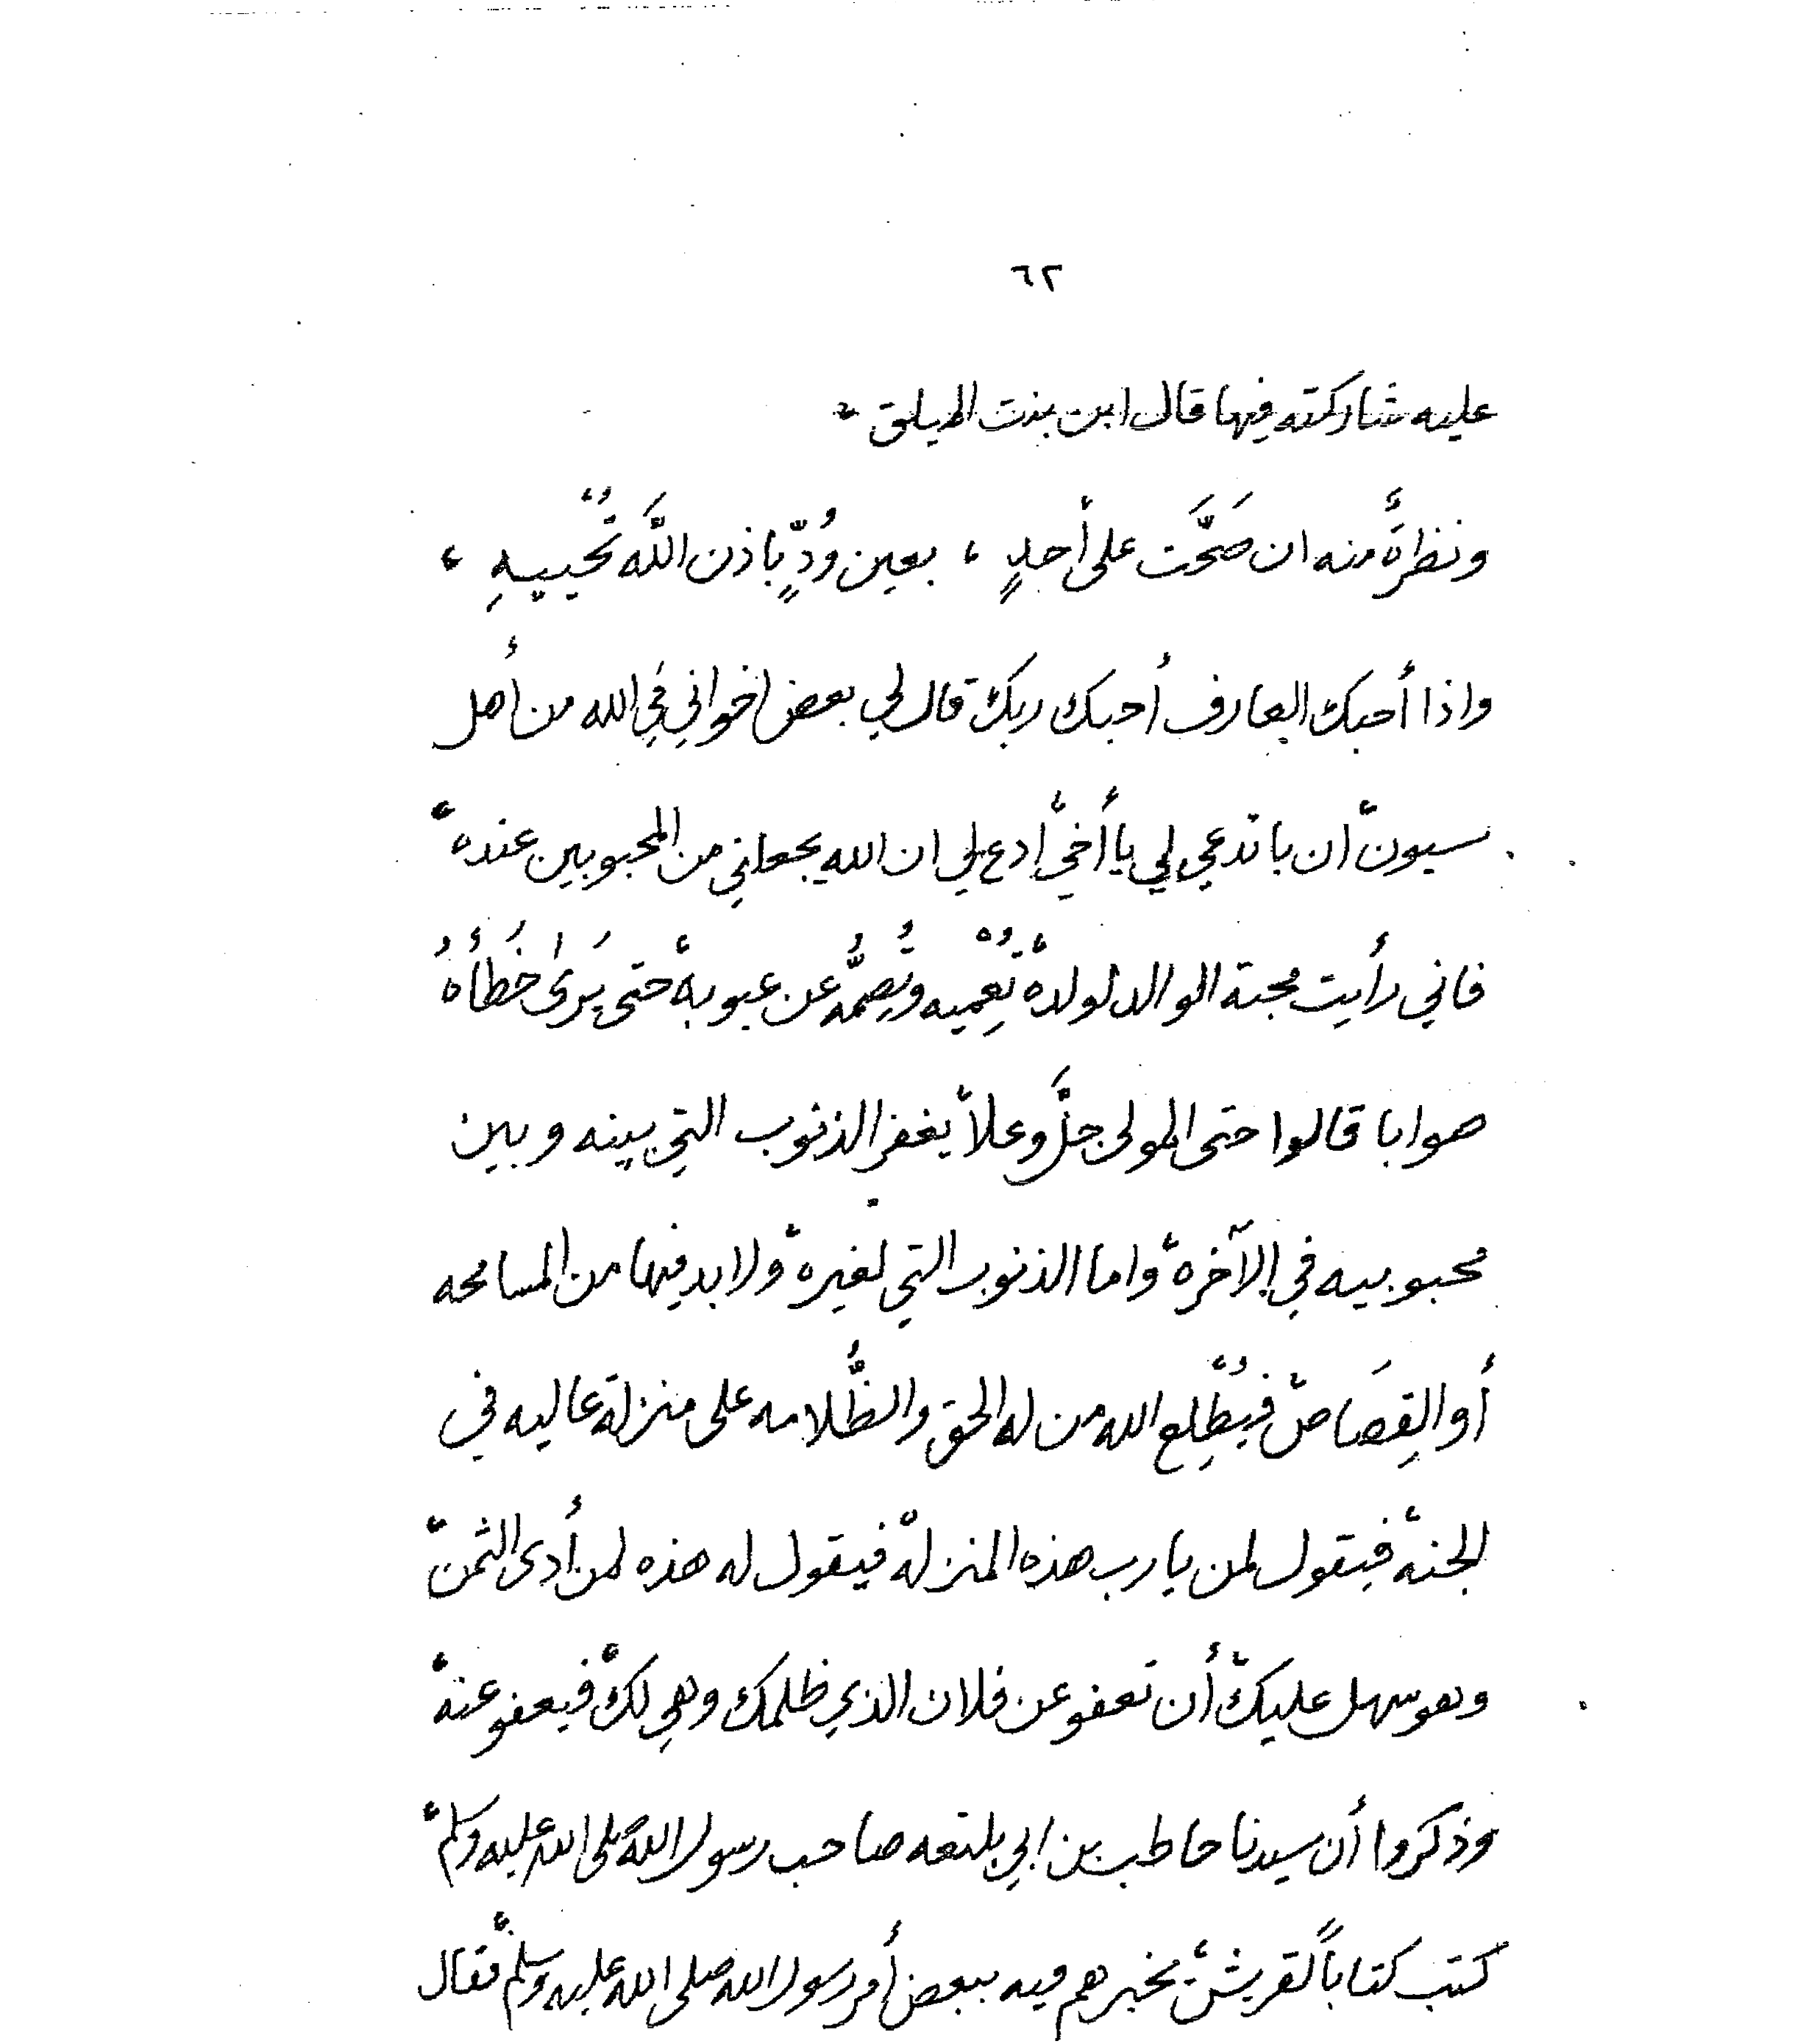 ٦٢
عليه شاركته فيها قال ابن بنت الميلق ،
ونظرةٌ منه ان صَحَّت على أحدٍ ، بعين وُدٍّ باذن اللَّه تُحييهِ ،
واذا أحبك العارف أحبك ربك قال لي بعض اخواني في الله من أهل
سيون ، ان باتدعي لي يا أخي ، ادع لي ان الله يجعلني من المحبوبين عنده ،
فاني رأيت محبة الوالد لولده ، تُعْمِيه وتُصِمُّه عن عيوبه ، حتى يَرىٰ خَطَأهُ
صوابا قالوا حتى المولى جلَّ وعلا ، يغفر الذنوب التي بينه وبين
محبوبيه في الآخرة ، واما الذنوب التي لغيره ، ولا بد فيها من المسامحه
أو القِصَاص ، فيُطْلِع الله من له الحق والظُّلامه على منزلة عاليه في
الجنة ، فيقول لمن يا رب هذه المنزلة ، فيقول له هذه لمن أدى الثمن ،
وهو سهل عليك ، أن تعفو عن فلان الذي ظلمك وهي لك ، فيعفو عنه ،
وذكروا أن سيدنا حاطب بن ابي بلتعه صاحب رسول الله صلى الله عليه وسلم ،
كتب كتاباً لقريش ، يخبرهم فيه ببعض أمر رسول الله صلى الله عليه وسلم ، فقال